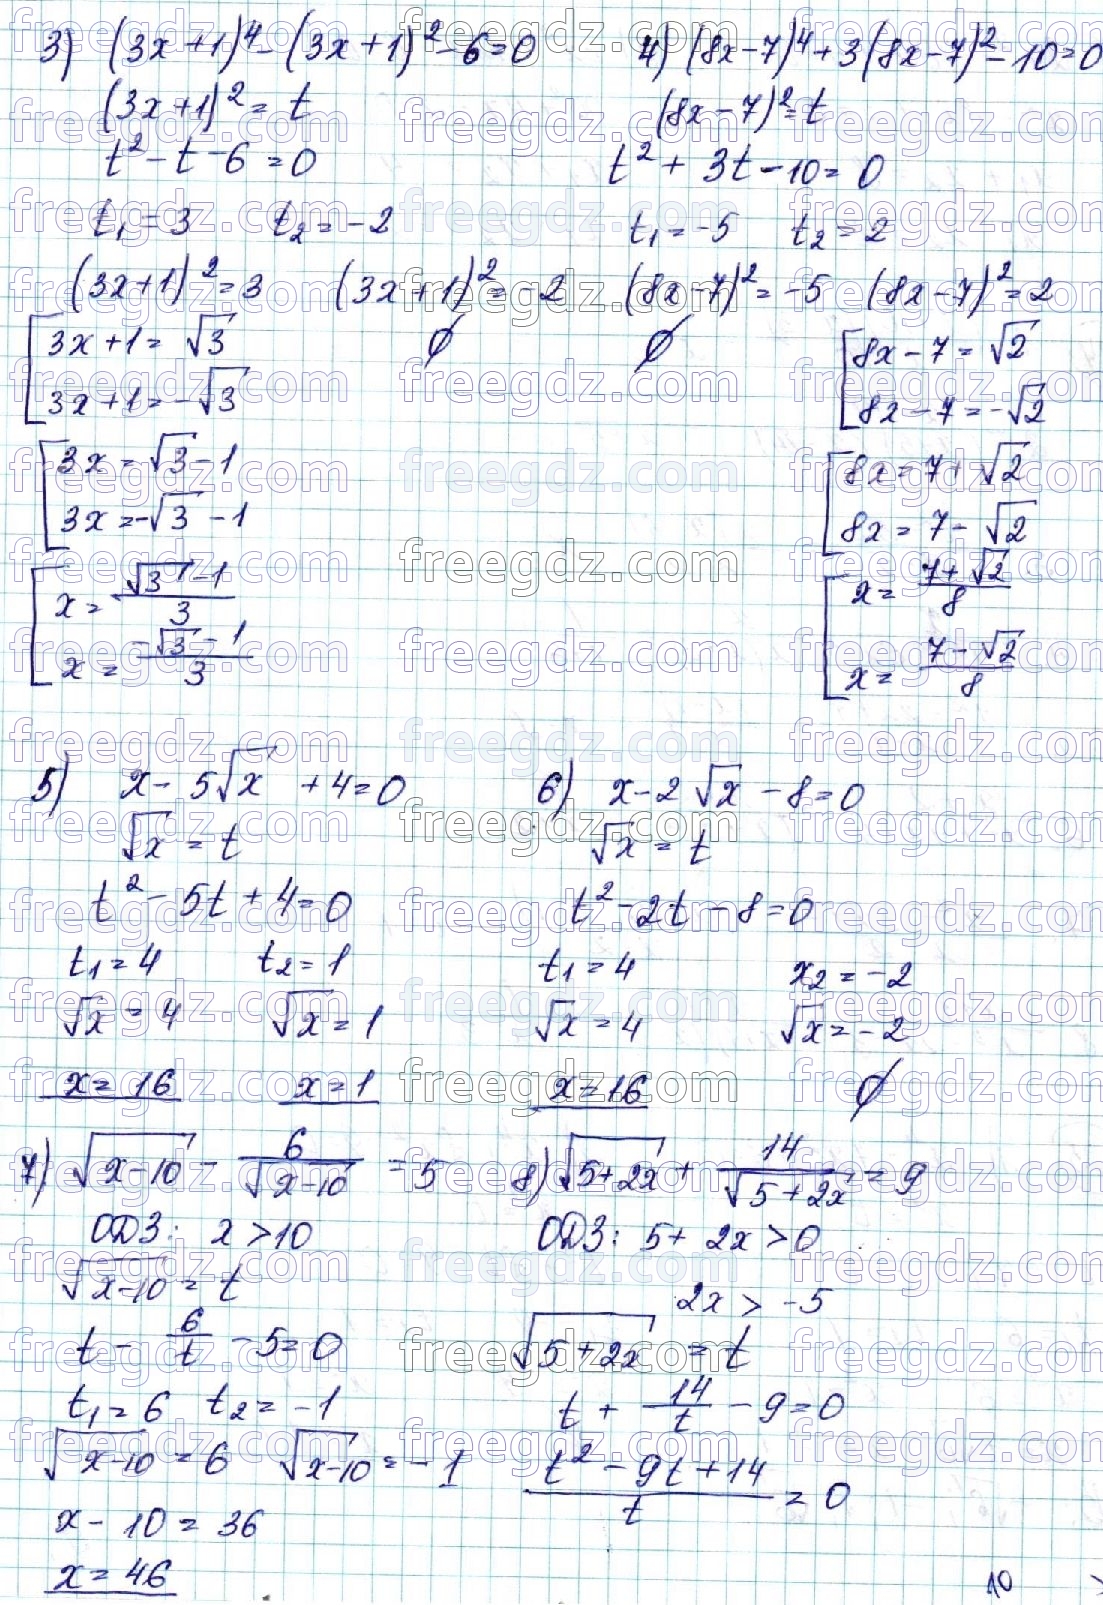 3) (3x+1)⁴-(3x+1)²-6=0
(3x+1)²=t
t²-t-6=0
t₁=3 t₂=-2
(3x+1)²=3 (3x+1)²=-2
[3x+1=√3 ∅
3x+1=-√3
[3x=√3-1
3x=-√3-1
[x=(√3-1)/3
x=(-√3-1)/3
4) (8x-7)⁴+3(8x-7)²-10=0
(8x-7)²=t
t²+3t-10=0
t₁=-5 t₂=2
(8x-7)²=-5 (8x-7)²=2
∅ [8x-7=√2
8x-7=-√2
[8x=7+√2
8x=7-√2
[x=(7+√2)/8
x=(7-√2)/8
5) x-5√x+4=0
√x=t
t²-5t+4=0
t₁=4 t₂=1
√x=4 √x=1
x=16 x=1
6) x-2√x-8=0
√x=t
t²-2t-8=0
t₁=4 x₂=-2
√x=4 √x=-2
x=16 ∅
7) √(x-10)-6/√(x-10)=5
ОДЗ: x>10
√(x-10)=t
t-6/t-5=0
t₁=6 t₂=-1
√(x-10)=6 √(x-10)=-1
x-10=36
x=46
8) √(5+2x)+14/√(5+2x)=9
ОДЗ: 5+2x>0
2x>-5
√(5+2x)=t
t+14/t-9=0
(t²-9t+14)/t=0
10
freegdz.com